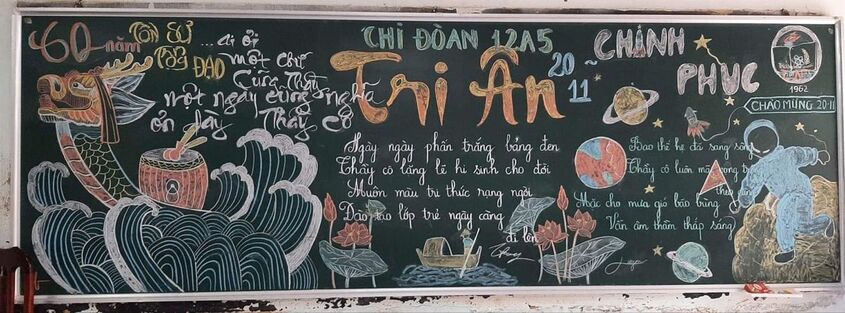 60 năm
TÔN SƯ
TRỌNG ĐẠO
...ai ơi
một chữ
Cũng Thầy
một ngày cũng nghĩa
ơn dạy Thầy Cô
CHI ĐOÀN 12A5
Tri Ân
20
11
~
CHINH
PHỤC
1962
CHÀO MỪNG 20-11
Ngày ngày phấn trắng bảng đen
Thầy cô lặng lẽ hi sinh cho đời
Muôn màu tri thức rạng ngời
Đào tạo lớp trẻ ngày càng
đi lên
Bao thế hệ đã sang sông
Thầy cô luôn mãi trong
Mặc cho mưa gió bão bùng
Vẫn âm thầm thắp sáng